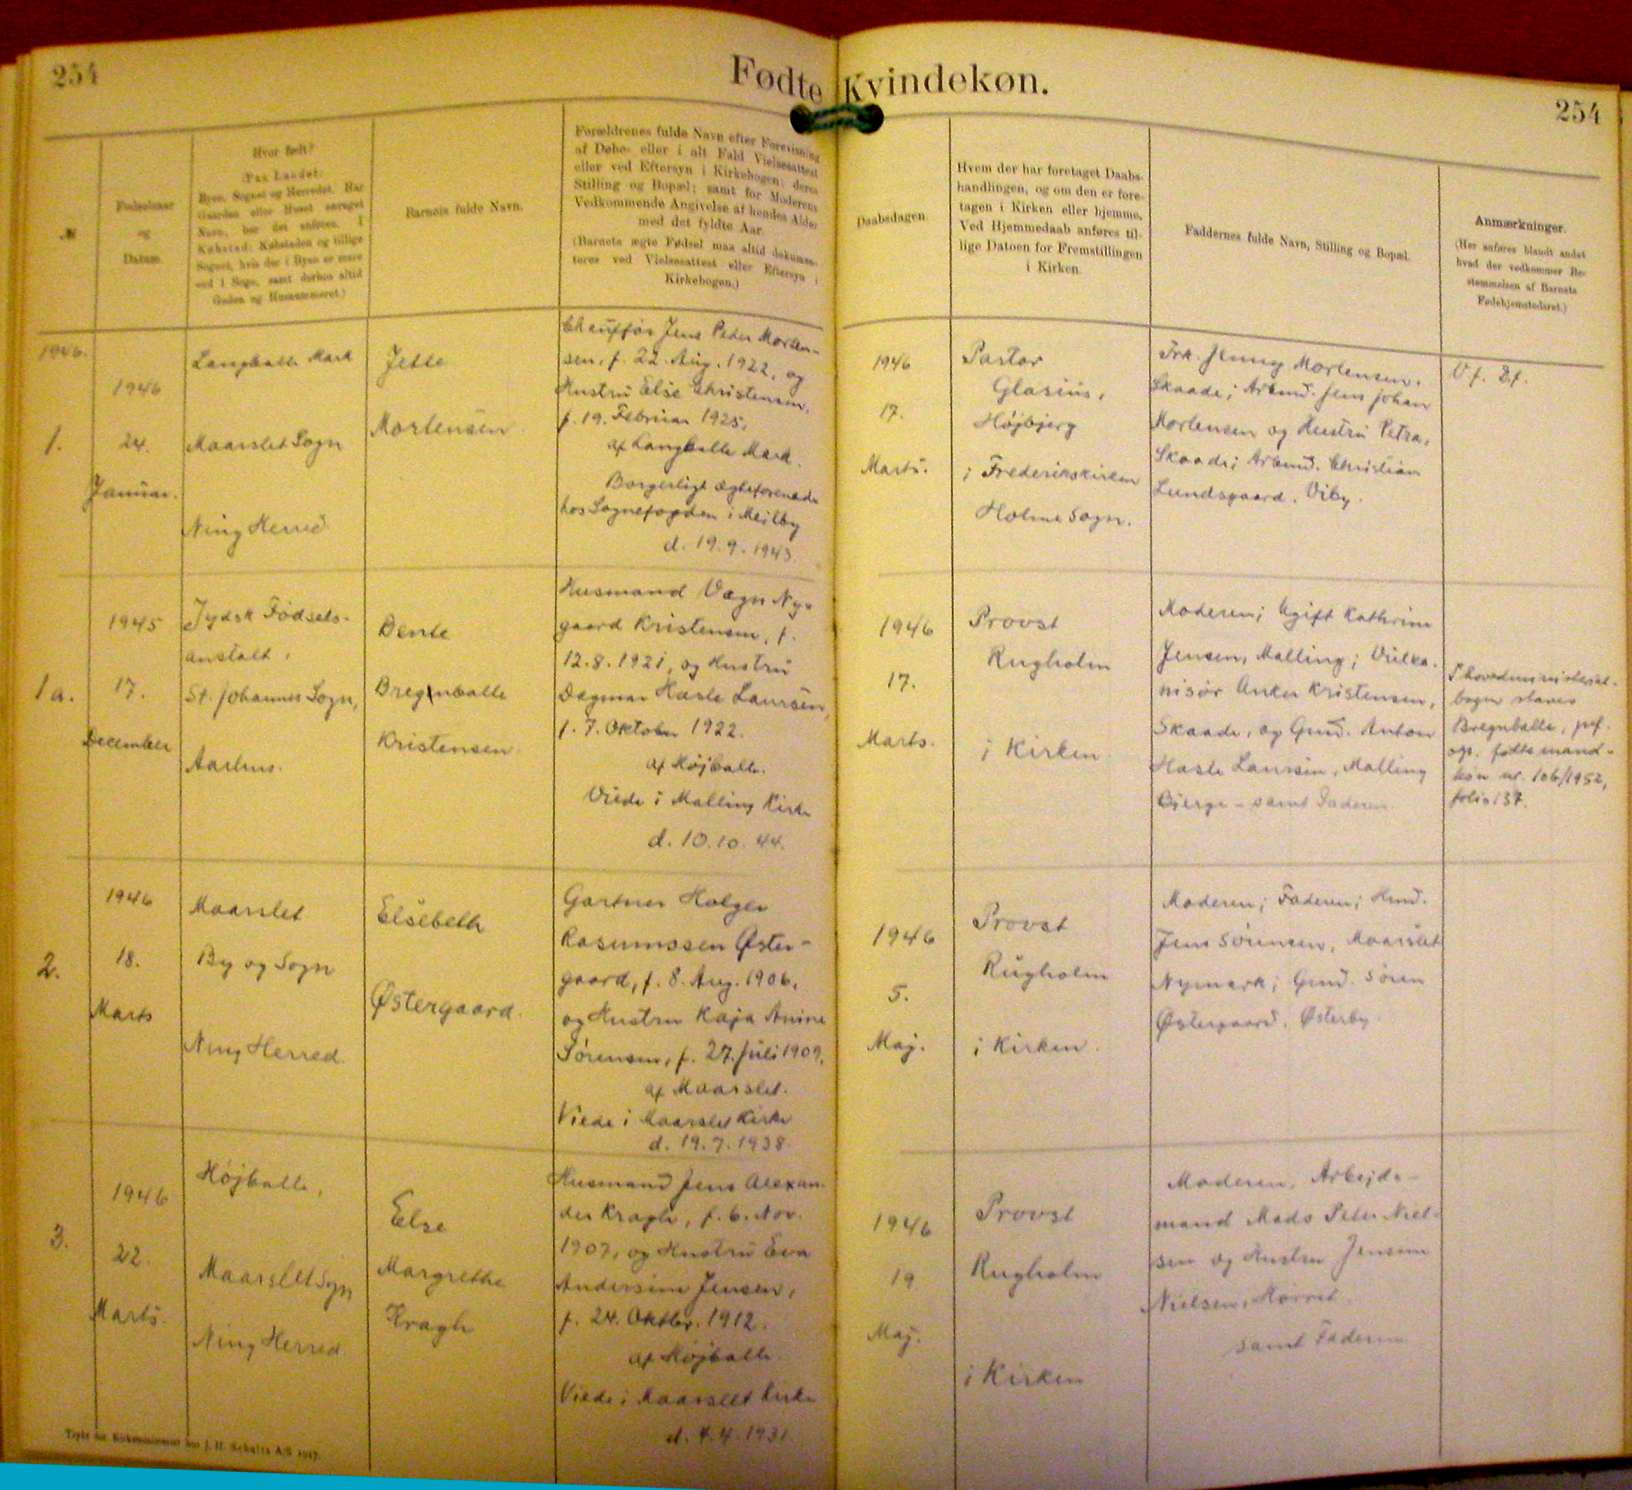 254
Fødte Kvindekøn.
254
№
Fødselsaar
og
Datum.
Hvor født?
(Paa Landet:
Byen, Sognet og Herredet. Har
Gaarden eller Huset særeget
Navn, bør det anføres. I
Købstad: Købstaden og tillige
Sognet, hvis der i Byen er mere
end 1 Sogn, samt derhos altid
Gaden og Husnummeret.)
Barnets fulde Navn.
Forældrenes fulde Navn efter Forevisning
af Døbe- eller i alt Fald Vielsesattest
eller ved Eftersyn i Kirkebogen; deres
Stilling og Bopæl; samt for Moderens
Vedkommende Angivelse af hendes Alder
med det fyldte Aar.
(Barnets ægte Fødsel maa altid dokumen-
teres ved Vielsesattest eller Eftersyn i
Kirkebogen.)
Daabsdagen.
Hvem der har foretaget Daabs-
handlingen, og om den er fore-
tagen i Kirken eller hjemme.
Ved Hjemmedaab anføres til-
lige Datoen for Fremstillingen
i Kirken.
Faddernes fulde Navn, Stilling og Bopæl.
Anmærkninger.
(Her anføres blandt andet
hvad der vedkommer Be-
stemmelsen af Barnets
Fødehjemstedsret.)
1946.
1.
1946
24.
Januar.
Langballe Mark
Maarslet Sogn
Ning Herred
Jette
Mortensen
Chauffør Jens Peder Morten-
sen, f. 22. Aug. 1922, og
Hustru Else Christensen,
f. 19. Februar 1925,
af Langballe Mark.
Borgerligt ægteforenede
hos Sognefogden i Mejlby
d. 19.9.1943.
1946
17.
Marts.
Pastor
Glasius,
Højbjerg
i Frederikskirken
Holme Sogn.
Frk. Jenny Mortensen,
Skaade; Arbmd. Jens Johan
Mortensen og Hustru Petra,
Skaade; Arbmd. Christian
Lundsgaard, Viby.
1 a.
1945
17.
December
Jydsk Fødsels-
anstalt,
St. Johannes Sogn,
Aarhus.
Bente
Bregnballe
Kristensen
Husmand Vagn Ny-
gaard Kristensen, f.
12.8.1921, og Hustru
Dagmar Hasle Laursen,
f. 7. Oktober 1922.
af Højballe.
Viede i Malling Kirke
d. 10.10.44.
1946
17.
Marts.
Provst
Rugholm
i Kirken
Moderen; Ugift Kathrine
Jensen, Malling; Vulka-
nisør Anker Kristensen,
Skaade, og Gmd. Anton
Hasle Laursen, Malling
Bjerge - samt Faderen.
I hovedministerial-
bogen staves
Bregnballe, jvf.
op. fødte mand-
køn nr. 106/1952,
folio 137.
2.
1946
18.
Marts
Maarslet
By og Sogn
Ning Herred.
Elsebeth
Østergaard.
Gartner Holger
Rasmussen Øster-
gaard, f. 8. Aug. 1906,
og Hustru Kaja Anine
Sørensen, f. 27. Juli 1909,
af Maarslet.
Viede i Maarslet Kirke
d. 19.7.1938.
1946
5.
Maj.
Provst
Rugholm
i Kirken.
Moderen; Faderen; Hmd.
Jens Sørensen, Maarslet
Nymark; Gmd. Søren
Østergaard, Østerby.
3.
1946
22.
Marts.
Højballe,
Maarslet Sogn
Ning Herred
Else
Margrethe
Kragh
Husmand Jens Alexan-
der Kragh, f. 6. Nov.
1907, og Hustru Eva
Andersine Jensen,
f. 24. Oktbr. 1912.
af Højballe
Viede i Maarslet Kirke
d. 4.4.1931.
1946
19
Maj.
Provst
Rugholm
i Kirken
Moderen, Arbejds-
mand Mads Peter Niel-
sen og Hustru Jensine
Nielsen, Mørret
samt Faderen